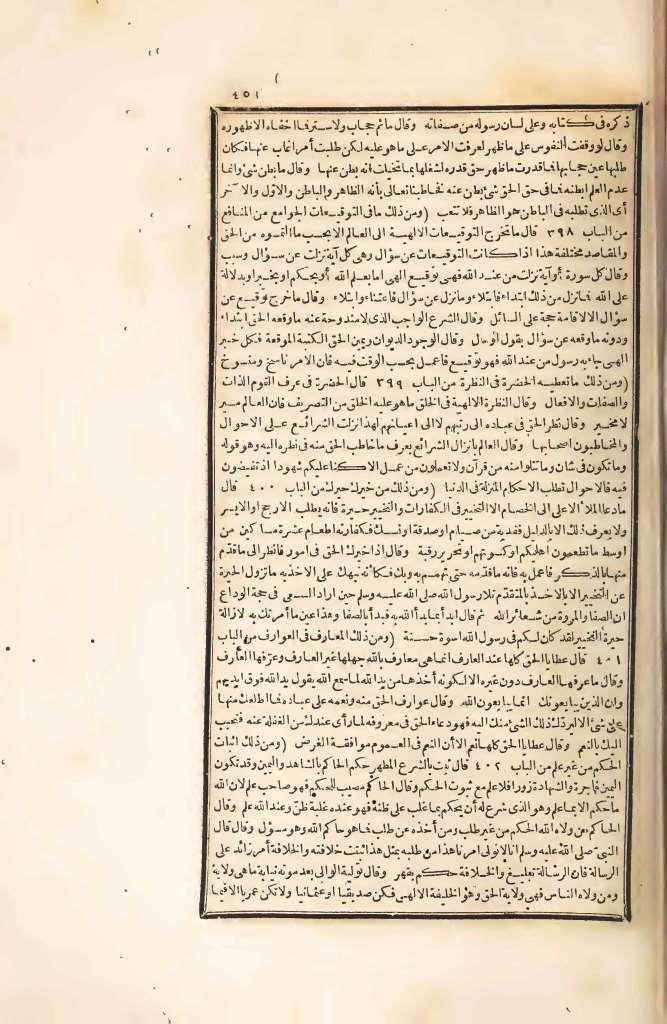 ٤٥١
ذكره فى كتابه وعلى لسان رسوله من صفاته وقال ماثم حجاب ولا ستر فما اخفاه الاظهوره
وقال لو وقفت النفوس على ما ظهر لعرفت الامر على ما هو عليه لكن طلبت أمرا غاب عنها فكان
طلبها عين حجابها فما قدرت ما ظهر حق قدره لشغلها بما تخيلت انه بطن عنها وقال ما بطن شئ وانما
عدم العلم ابطنه فما فى حق الحق شئ بطن عنه فخاطبنا تعالى بأنه الظاهر والباطن والاول والآخر
أى الذى تطلبه فى الباطن هو الظاهر فلا تتعب (ومن ذلك ما فى التوقيعات الجوامع من المنافع
من الباب ٣٩٨ قال ما تخرج التوقيعات الالهية الى العالم الا بحسب ما التمسوه من الحق
والمقاصد مختلفة هذا اذا كانت التوقيعات عن سؤال وهى كل آية نزلت عن سؤال وسبب
وقال كل سورة أو آية نزلت من عند الله فهى توقيع الهى اما بعلم الله أو بحكم او بخبر او بدلالة
على الله فما نزل من ذلك ابتداء فابتلاء وما نزل عن سؤال فاعتناء وابتلاء وقال ما خرج توقيع عن
سؤال الا لاقامة حجة على السائل وقال الشرع الواجب الذى لا مندوحة عنه ما وقعه الحق ابتداء
ودونه ما وقعه عن سؤال بقول او حال وقال الوجود الديوان ويمين الحق الكتبة الموقعة فكل خبر
الهى جاء به رسول من عند الله فهو توقيع فاعمل بحسب الوقت فيه فان الامر ناسخ ومنسوخ
(ومن ذلك ما تعطيه الحضرة فى النظرة من الباب ٣٩٩ قال الحضرة فى عرف القوم الذات
والصفات والافعال وقال النظرة الالهية فى الخلق ما هو عليه الخلق من التصريف فان العالم مسير
لا مخير وقال نظر الحق فى عباده الى رتبهم لا الى اعيانهم لهذا نزلت الشرائع على الاحوال
والمخاطبون اصحابها وقال العالم بانزال الشرائع يعرف ما خاطب الحق منه فى نظره اليه وهو قوله
وما تكون فى شان وما تتلوا منه من قرآن ولا تعملون من عمل الا كنا عليكم شهودا اذ تفيضون
فيه فالاحوال تطلب الاحكام المنزلة فى الدنيا (ومن ذلك من خيرك حيرك من الباب ٤٠٠ قال
ما دعا الملأ الاعلى الى الخصام الا التخيير فى الكفارات والتخيير حيرة فانه يطلب الارجح او الايسر
ولا يعرف ذلك الا بالدليل ففدية من صيام او صدقة او نسك فكفارته اطعام عشرة مساكين من
اوسط ما تطعمون اهليكم او كسوتهم او تحرير رقبة وقال اذا خيرك الحق فى امور فانظر الى ما قدم
منها بالذكر فاعمل به فانه ما قدمه حتى تهمم به وبك فكأنه نبهك على الاخذ به ما تزول الحيرة
عن التخيير الا بالاخذ بالمتقدم تلا رسول الله صلى الله عليه وسلم حين اراد السعى فى حجة الوداع
ان الصفا والمروة من شعائر الله ثم قال ابدأ بما بدأ الله به فبدأ بالصفا وهذا عين ما أمرتك به لازالة
حيرة التخيير لقد كان لكم فى رسول الله اسوة حسنة (ومن ذلك المعارف فى العوارف من الباب
٤٠١ قال عطايا الحق كلها عند العارف انما هى معارف بالله جهلها غير العارف وعرفها العارف
وقال ما عرفها العارف دون غيره الا لكونه أخذها من يد الله لما سمع الله يقول يد الله فوق ايديهم
وان الذين يبايعونك انما يبايعون الله وقال عوارف الحق منه ونعمه على عباده فما اطلعك منها
على شئ الا ليردك ذلك الشئ منك اليه فهو دعاء الحق فى معروفه لما رأى عندك من الغفلة عنه فتحبب
اليك بالنعم وقال عطايا الحق كلها نعم الا أن النعم فى العموم موافقة الغرض (ومن ذلك اثبات
الحكم من غير علم من الباب ٤٠٢ قال ثبت بالشرع المطهر حكم الحاكم بالشاهد واليمين وقد تكون
اليمين فاجرة والشهادة زورا فلا علم مع ثبوت الحكم وقال الحاكم مصيب للحكم فهو صاحب علم لان الله
ما حكم الا بما علم وهو الذى شرع له أن يحكم بما غلب على ظنه فهو عنده غلبة ظن وعند الله علم وقال
الحاكم من ولاه الله الحكم من غير طلب ومن أخذه عن طلب فما هو حاكم الله وهو مسؤل وقال قال
النبى صلى الله عليه وسلم انا لا نولى امرنا هذا من طلبه بمثل هذا ثبتت خلافته والخلافة أمر زائد على
الرسالة فان الرسالة تبليغ والخلافة حكم بقهر وقال تولية الوالى بعد موته نيابة ما هى ولاية
ومن ولاه الناس فهى ولاية الحق وهو الخليفة الالهى فكن صديقيا او عثمانيا ولا تكن عمريا الا فيما